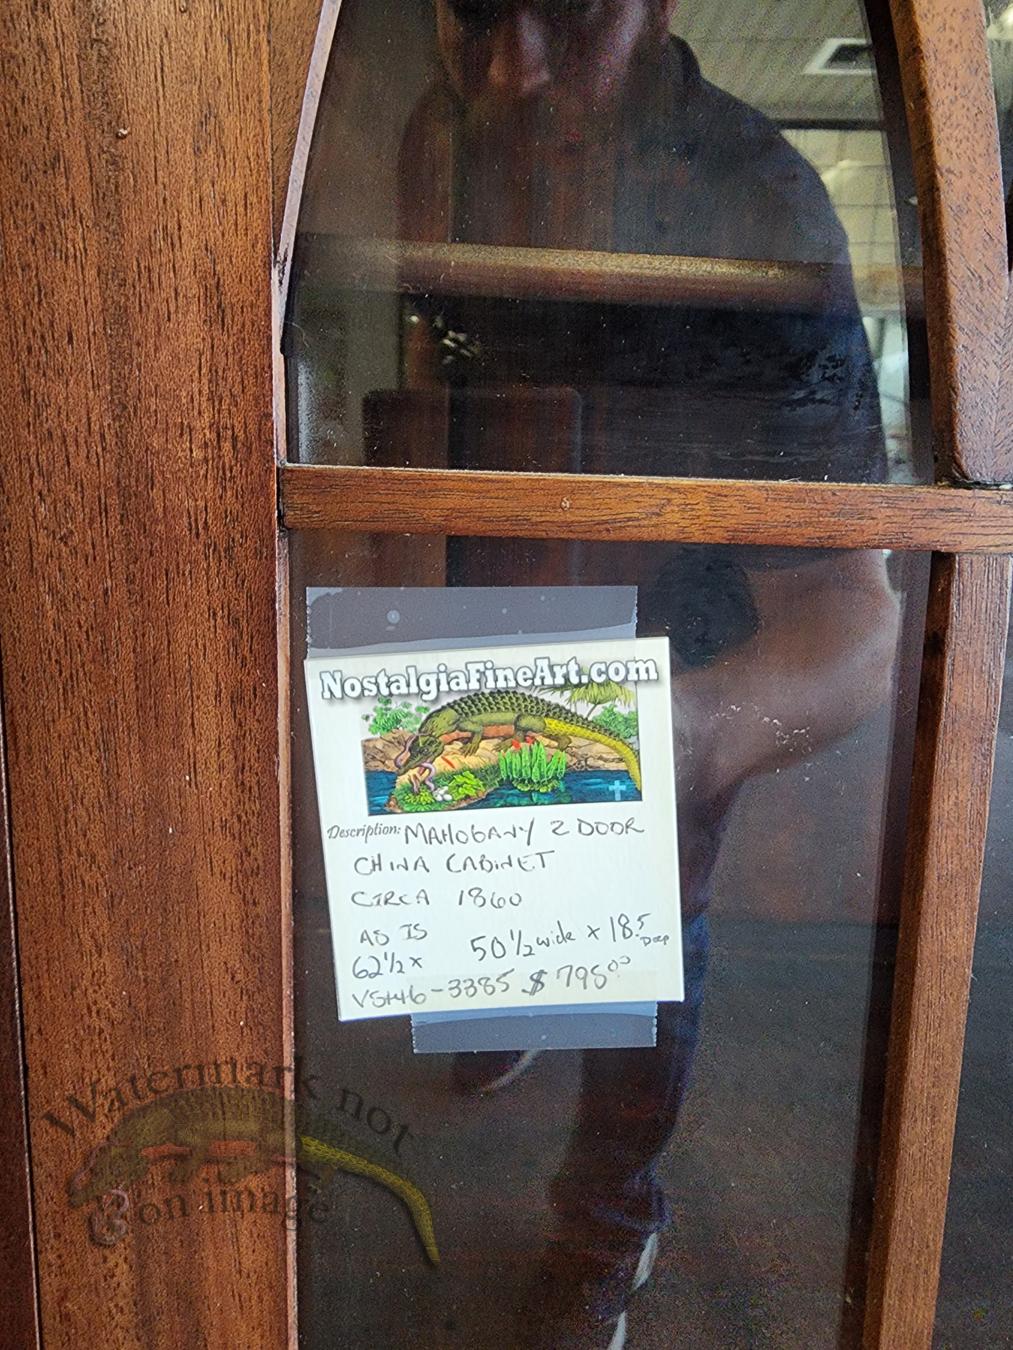 NostalgiaFineArt.com
Description: MAHOGANY 2 DOOR
CHINA CABINET
CIRCA 1860
AS IS
50 1/2 wide x 18.5 Deep
62 1/2 x
$ 795.00
Watermark not
on image